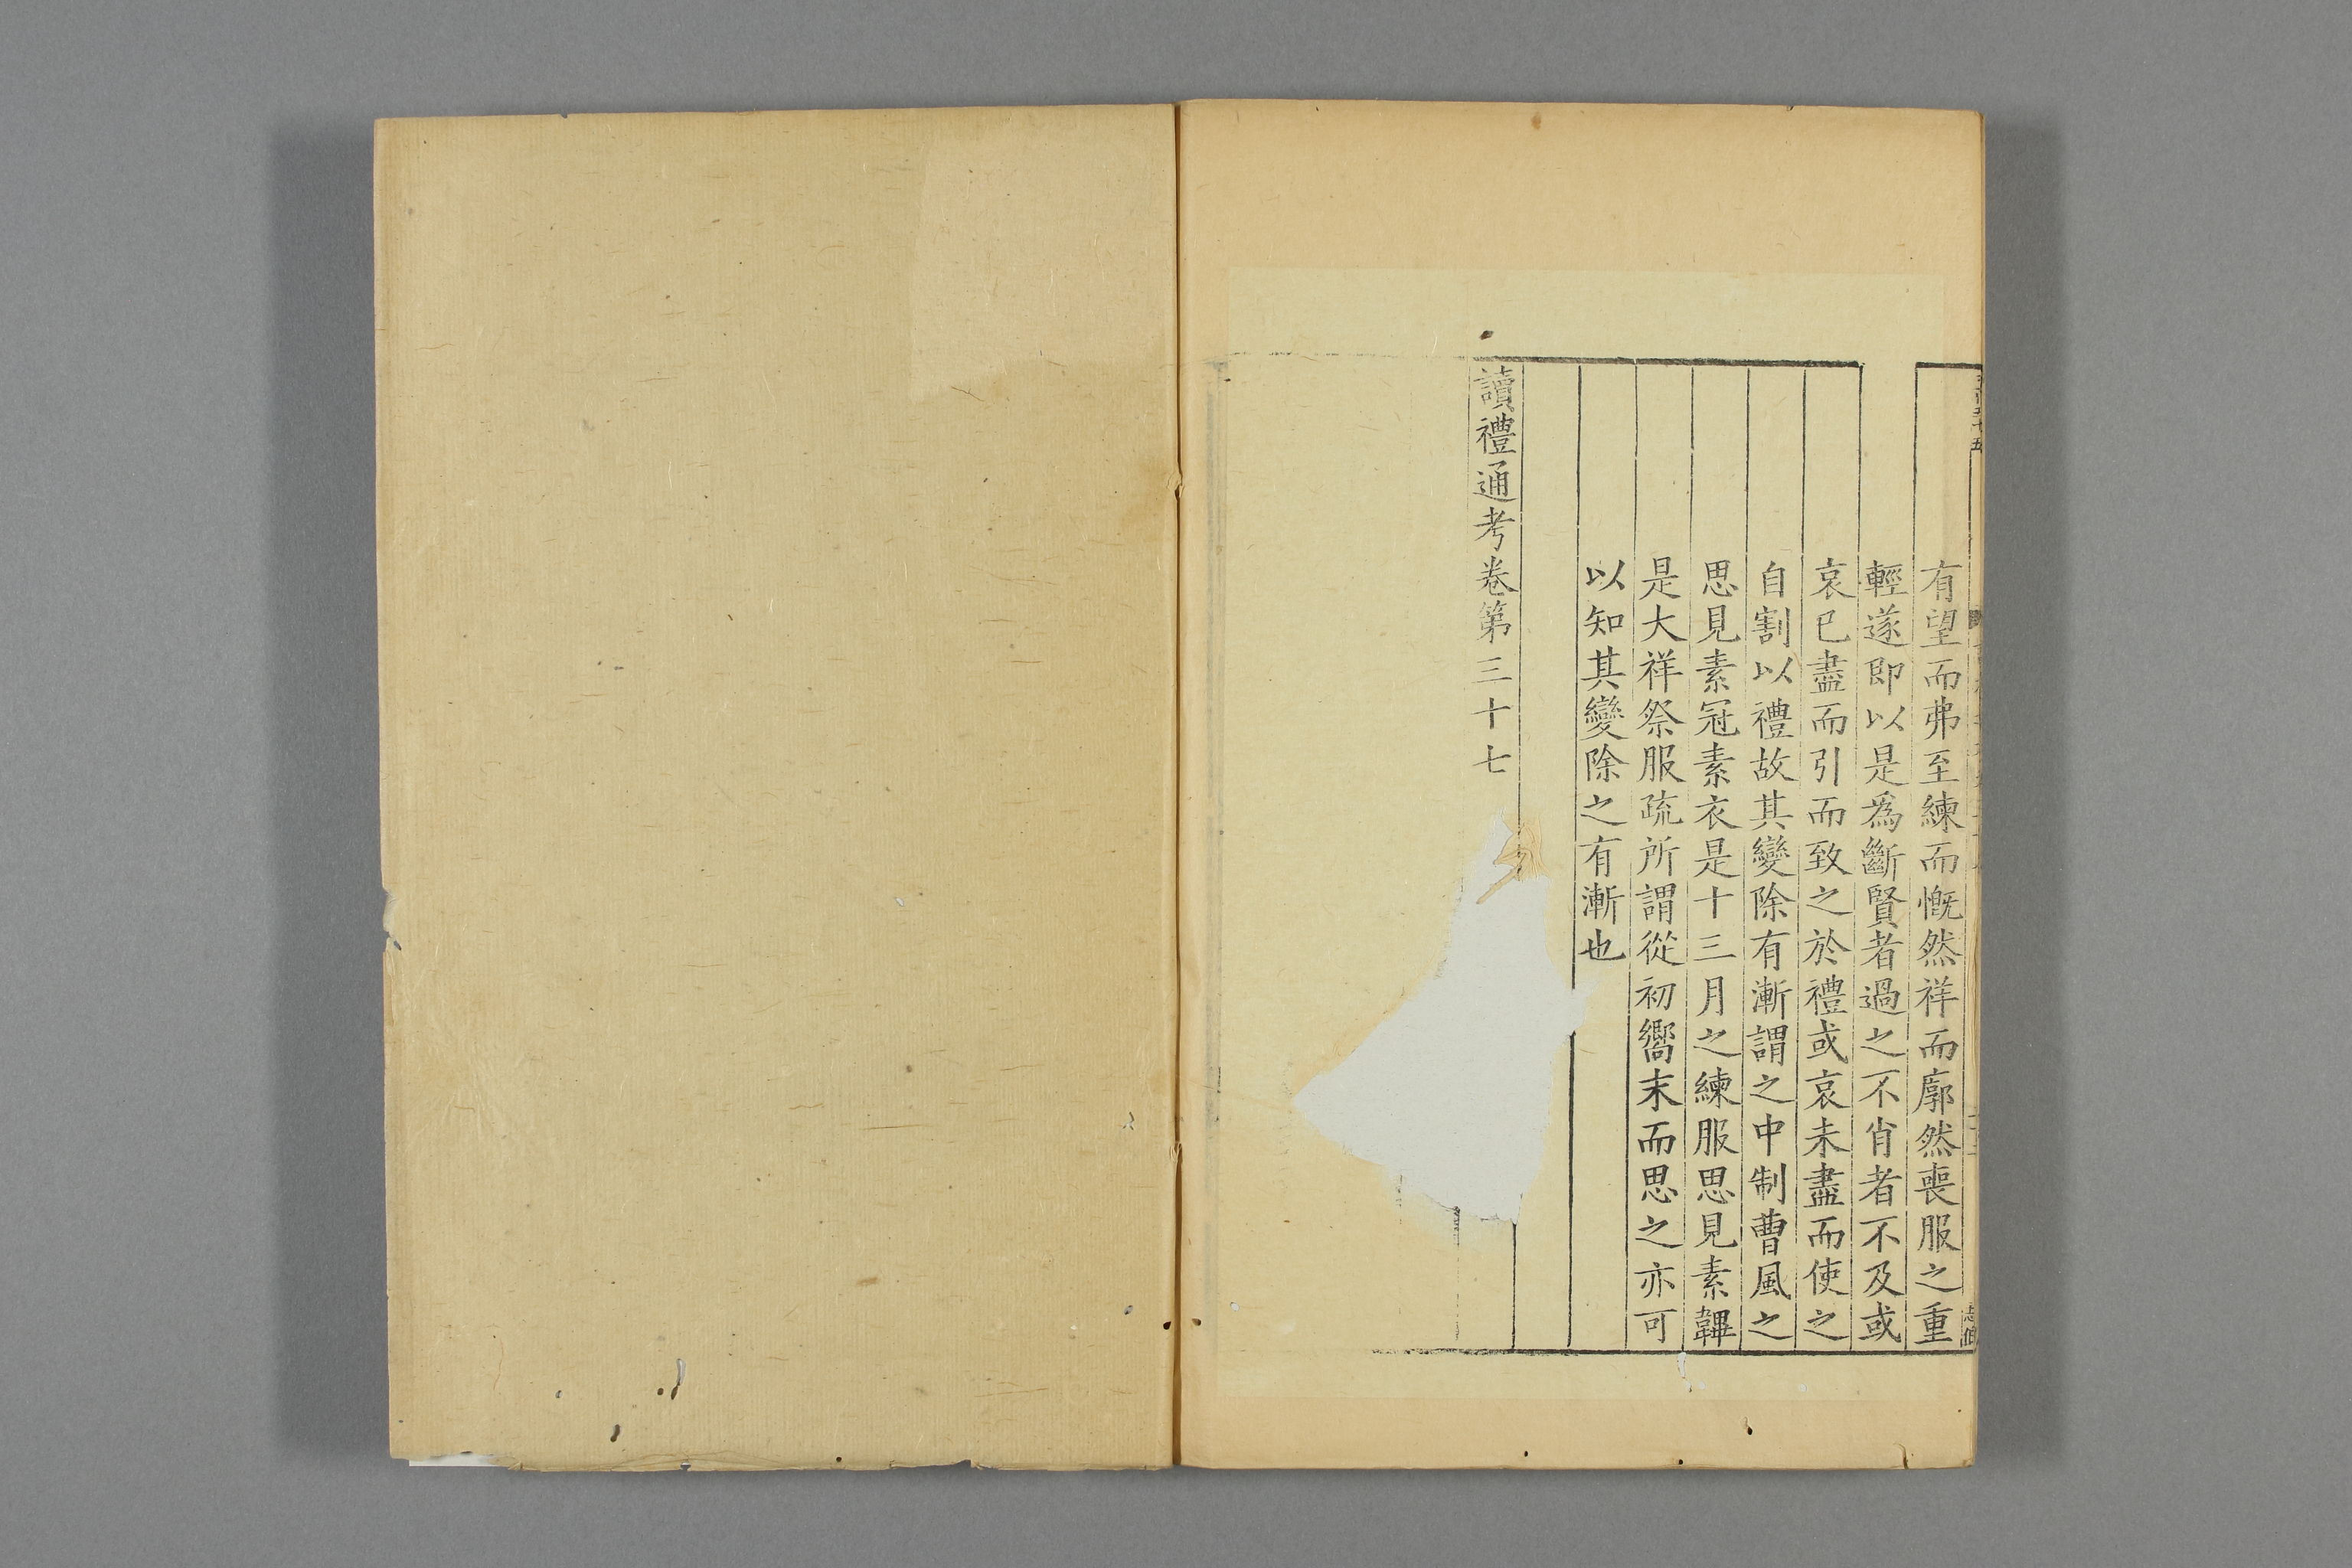 有望而弗至練而慨然祥而廓然喪服之重
輕遂即以是爲斷賢者過之不肖者不及或
哀已盡而引而致之於禮或哀未盡而使之
自割以禮故其變除有漸謂之中制曹風之
思見素冠素衣是十三月之練服思見素韠
是大祥祭服疏所謂從初嚮末而思之亦可
以知其變除之有漸也
讀禮通考卷第三十七